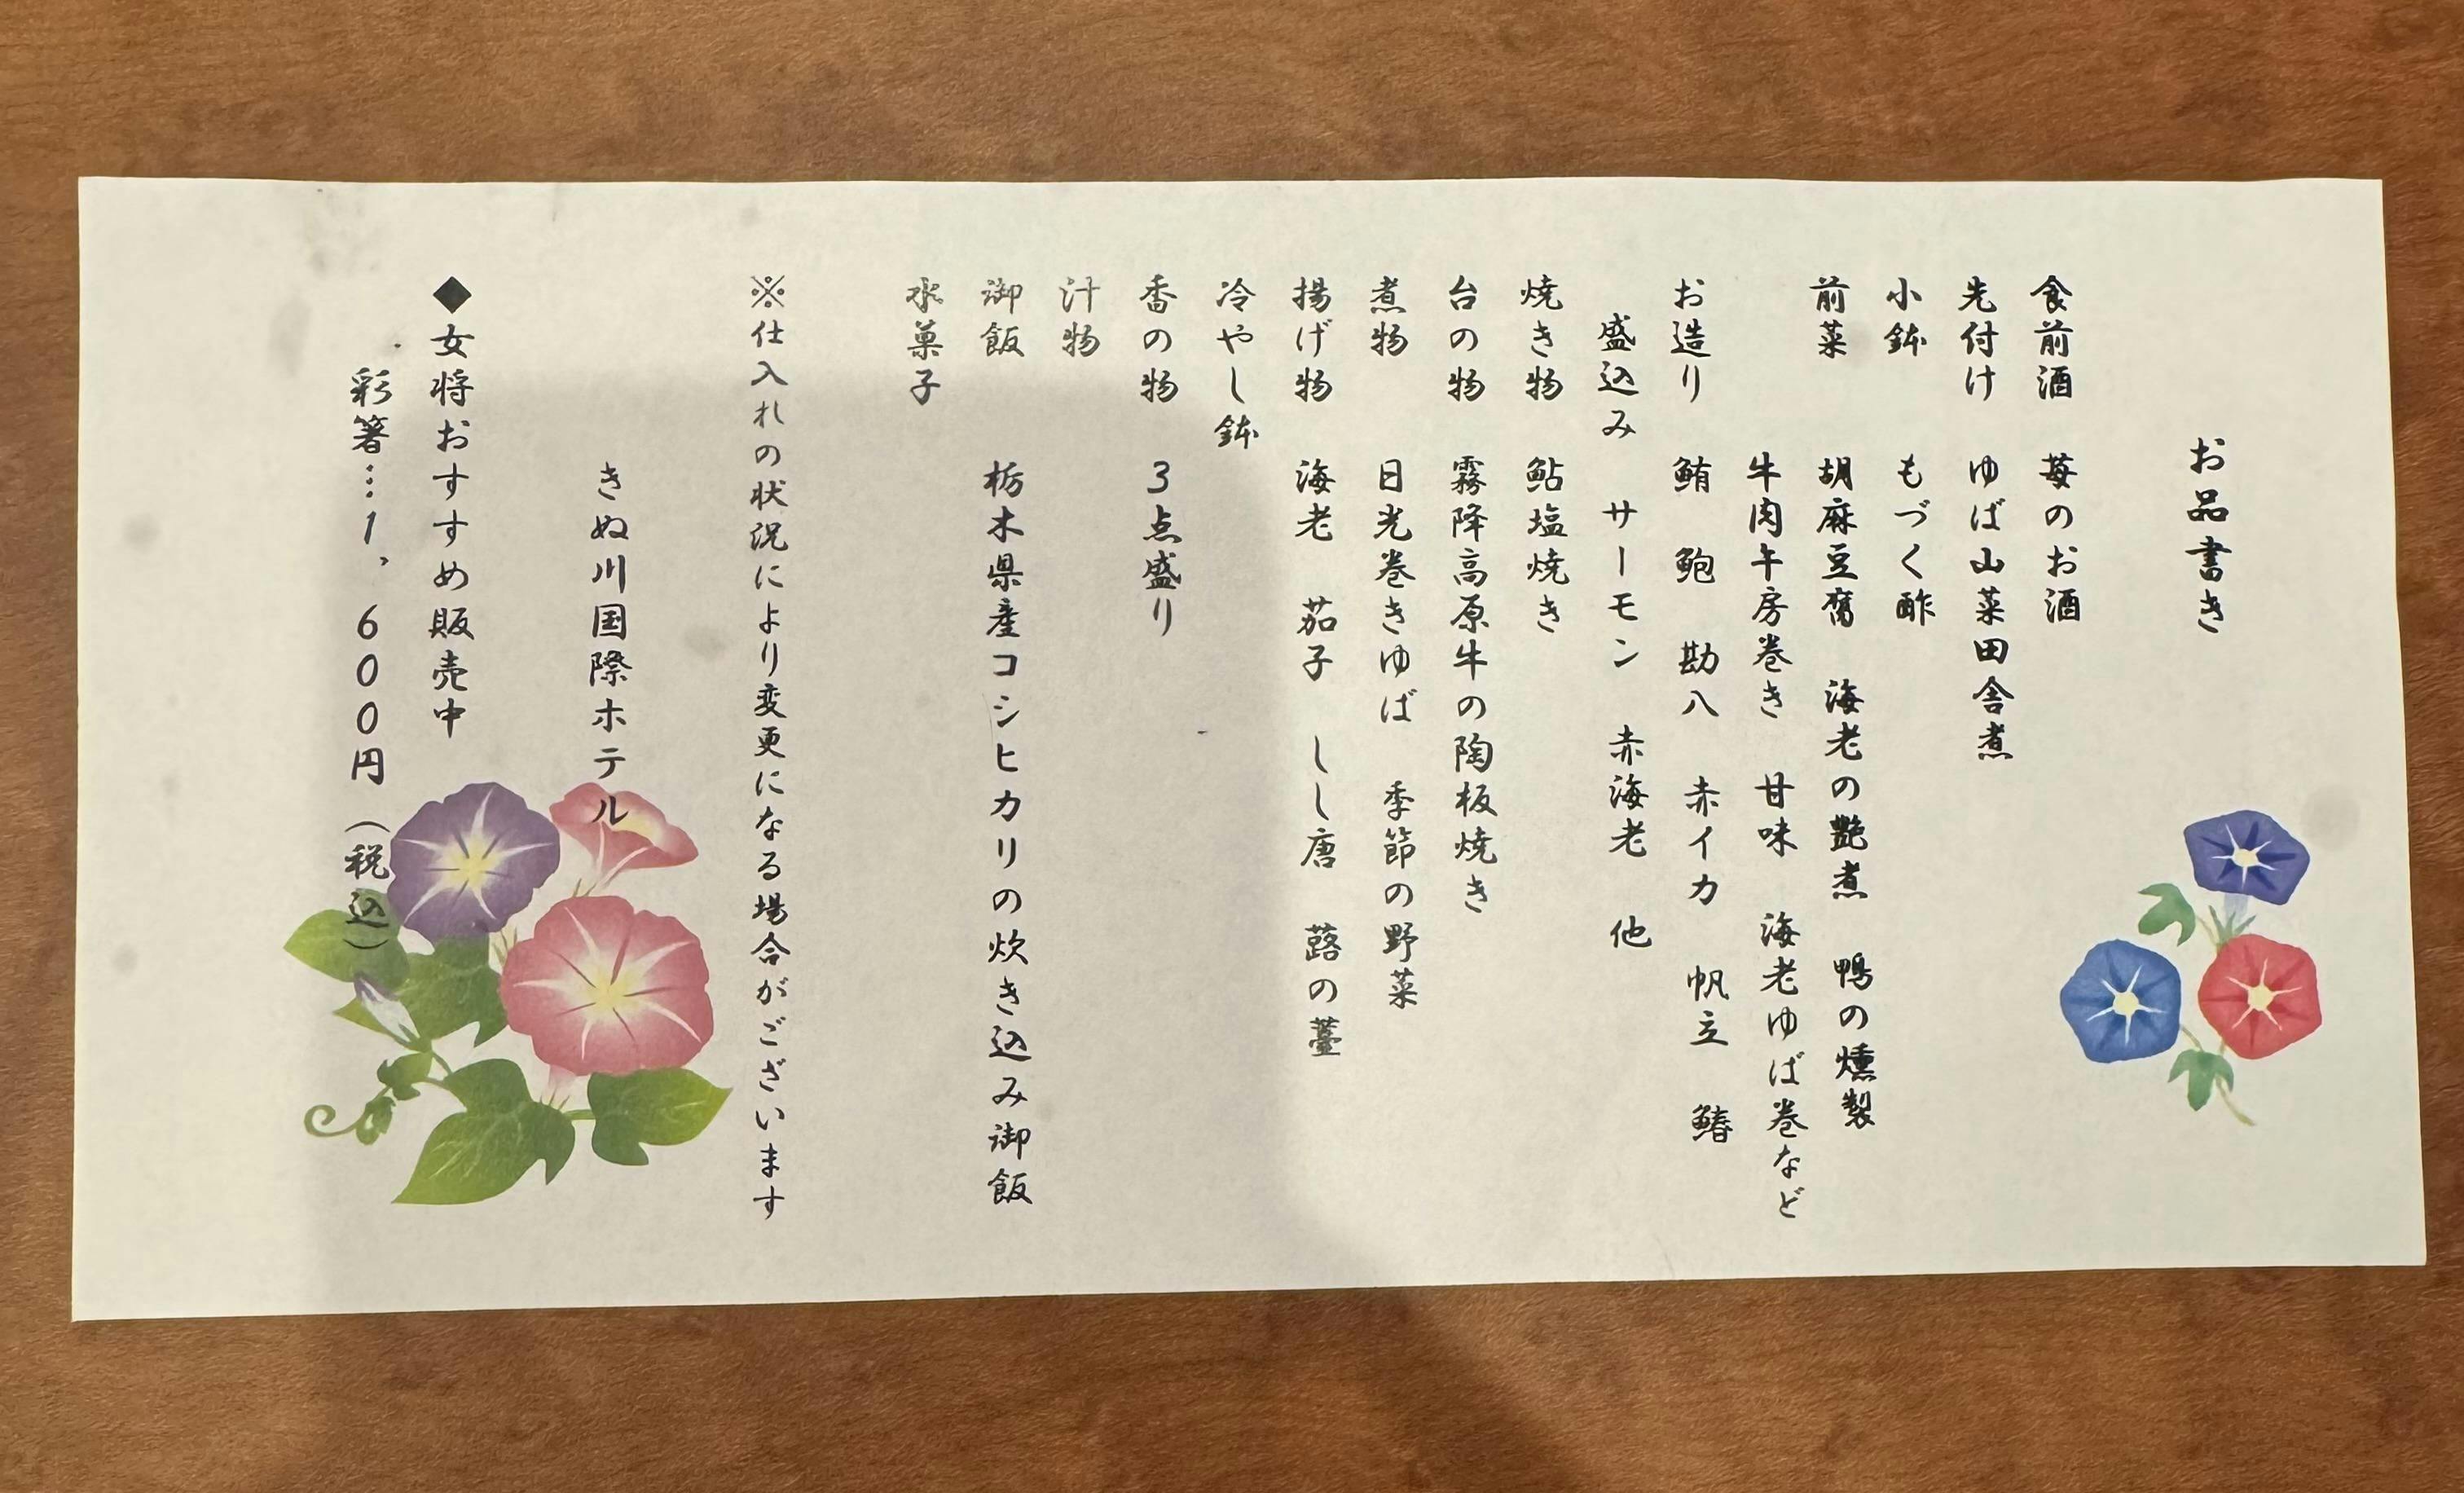 お品書き
食前酒　苺のお酒
先付け　ゆば山菜田舎煮
小鉢　もづく酢
前菜　胡麻豆腐　海老の艶煮　鴨の燻製
牛肉牛房巻き　甘味　海老ゆば巻など
お造り　鮪　鮑　勘八　赤イカ　帆立　鰆
盛込み　サーモン　赤海老　他
焼き物　鮎塩焼き
台の物　霧降高原牛の陶板焼き
煮物　日光巻きゆば　季節の野菜
揚げ物　海老　茄子　しし唐　蕗の薹
冷やし鉢
香の物　3点盛り
汁物
御飯　栃木県産コシヒカリの炊き込み御飯
水菓子
※仕入れの状況により変更になる場合がございます
きぬ川国際ホテル
◆女将おすすめ販売中
彩箸…1，600円（税込）